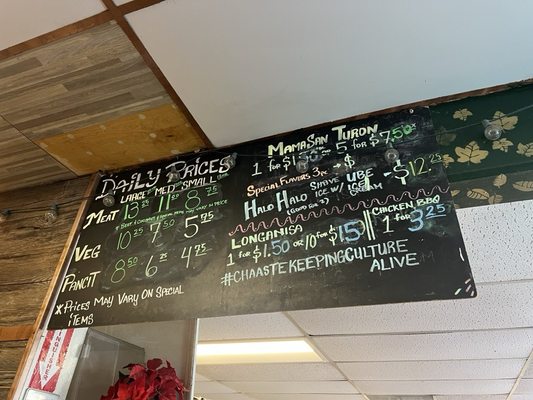 Daily Prices
Large Med Small
Meat 13.25 11.25 8.25
Veg 10.25 7.50 5.75
Pancit 8.50 6.25 4.75
* Prices May Vary on Special
Items
MamaSan Turon
1 for $1.50 or 5 for $7.50
Special Flavors 3pc - $
Halo Halo Shave Ube - $12.25
Ice w/ Ice
Cream
Longanisa
1 for $1.50 or 10 for $13.50
Chicken BBQ
1 for $3.25
#Chaastekeepingculture
Alive